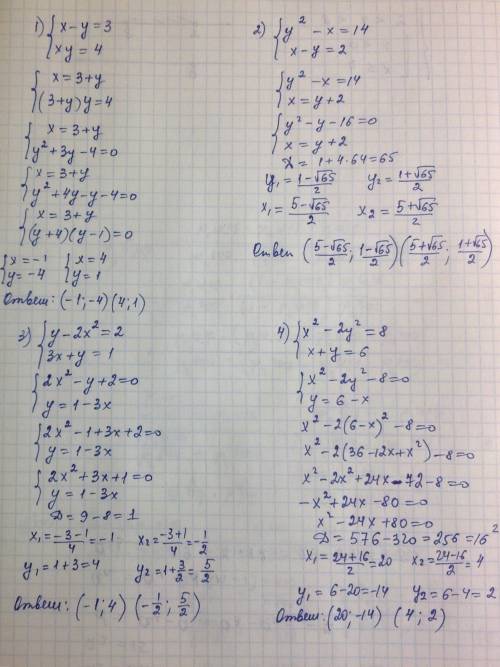 1) { x - y = 3
xy = 4
{ x = 3 + y
(3 + y) y = 4
{ x = 3 + y
y² + 3y - 4 = 0
{ x = 3 + y
y² + 4y - y - 4 = 0
{ x = 3 + y
(y + 4)(y - 1) = 0
{ x = -1 { x = 4
y = -4 y = 1
Ответ: (-1; -4) (4; 1)
2) { y² - x = 14
x - y = 2
{ y² - x = 14
x = y + 2
{ y² - y - 16 = 0
x = y + 2
D = 1 + 4·64 = 65
y₁ = (1-√65)/2 y₂ = (1+√65)/2
x₁ = (5-√65)/2 x₂ = (5+√65)/2
Ответ ((5-√65)/2; (1-√65)/2) ((5+√65)/2; (1+√65)/2)
3) { y - 2x² = 2
3x + y = 1
{ 2x² - y + 2 = 0
y = 1 - 3x
{ 2x² - 1 + 3x + 2 = 0
y = 1 - 3x
{ 2x² + 3x + 1 = 0
y = 1 - 3x
D = 9 - 8 = 1
x₁ = (-3-1)/4 = -1 x₂ = (-3+1)/4 = -1/2
y₁ = 1 + 3 = 4 y₂ = 1 + 3/2 = 5/2
Ответ: (-1; 4) (-1/2; 5/2)
4) { x² - 2y² = 8
x + y = 6
{ x² - 2y² - 8 = 0
y = 6 - x
x² - 2(6 - x)² - 8 = 0
x² - 2(36 - 12x + x²) - 8 = 0
x² - 2x² + 24x - 72 - 8 = 0
-x² + 24x - 80 = 0
x² - 24x + 80 = 0
D = 576 - 320 = 256 = 16²
x₁ = (24+16)/2 = 20 x₂ = (24-16)/2 = 4
y₁ = 6 - 20 = -14 y₂ = 6 - 4 = 2
Ответ: (20; -14) (4; 2)